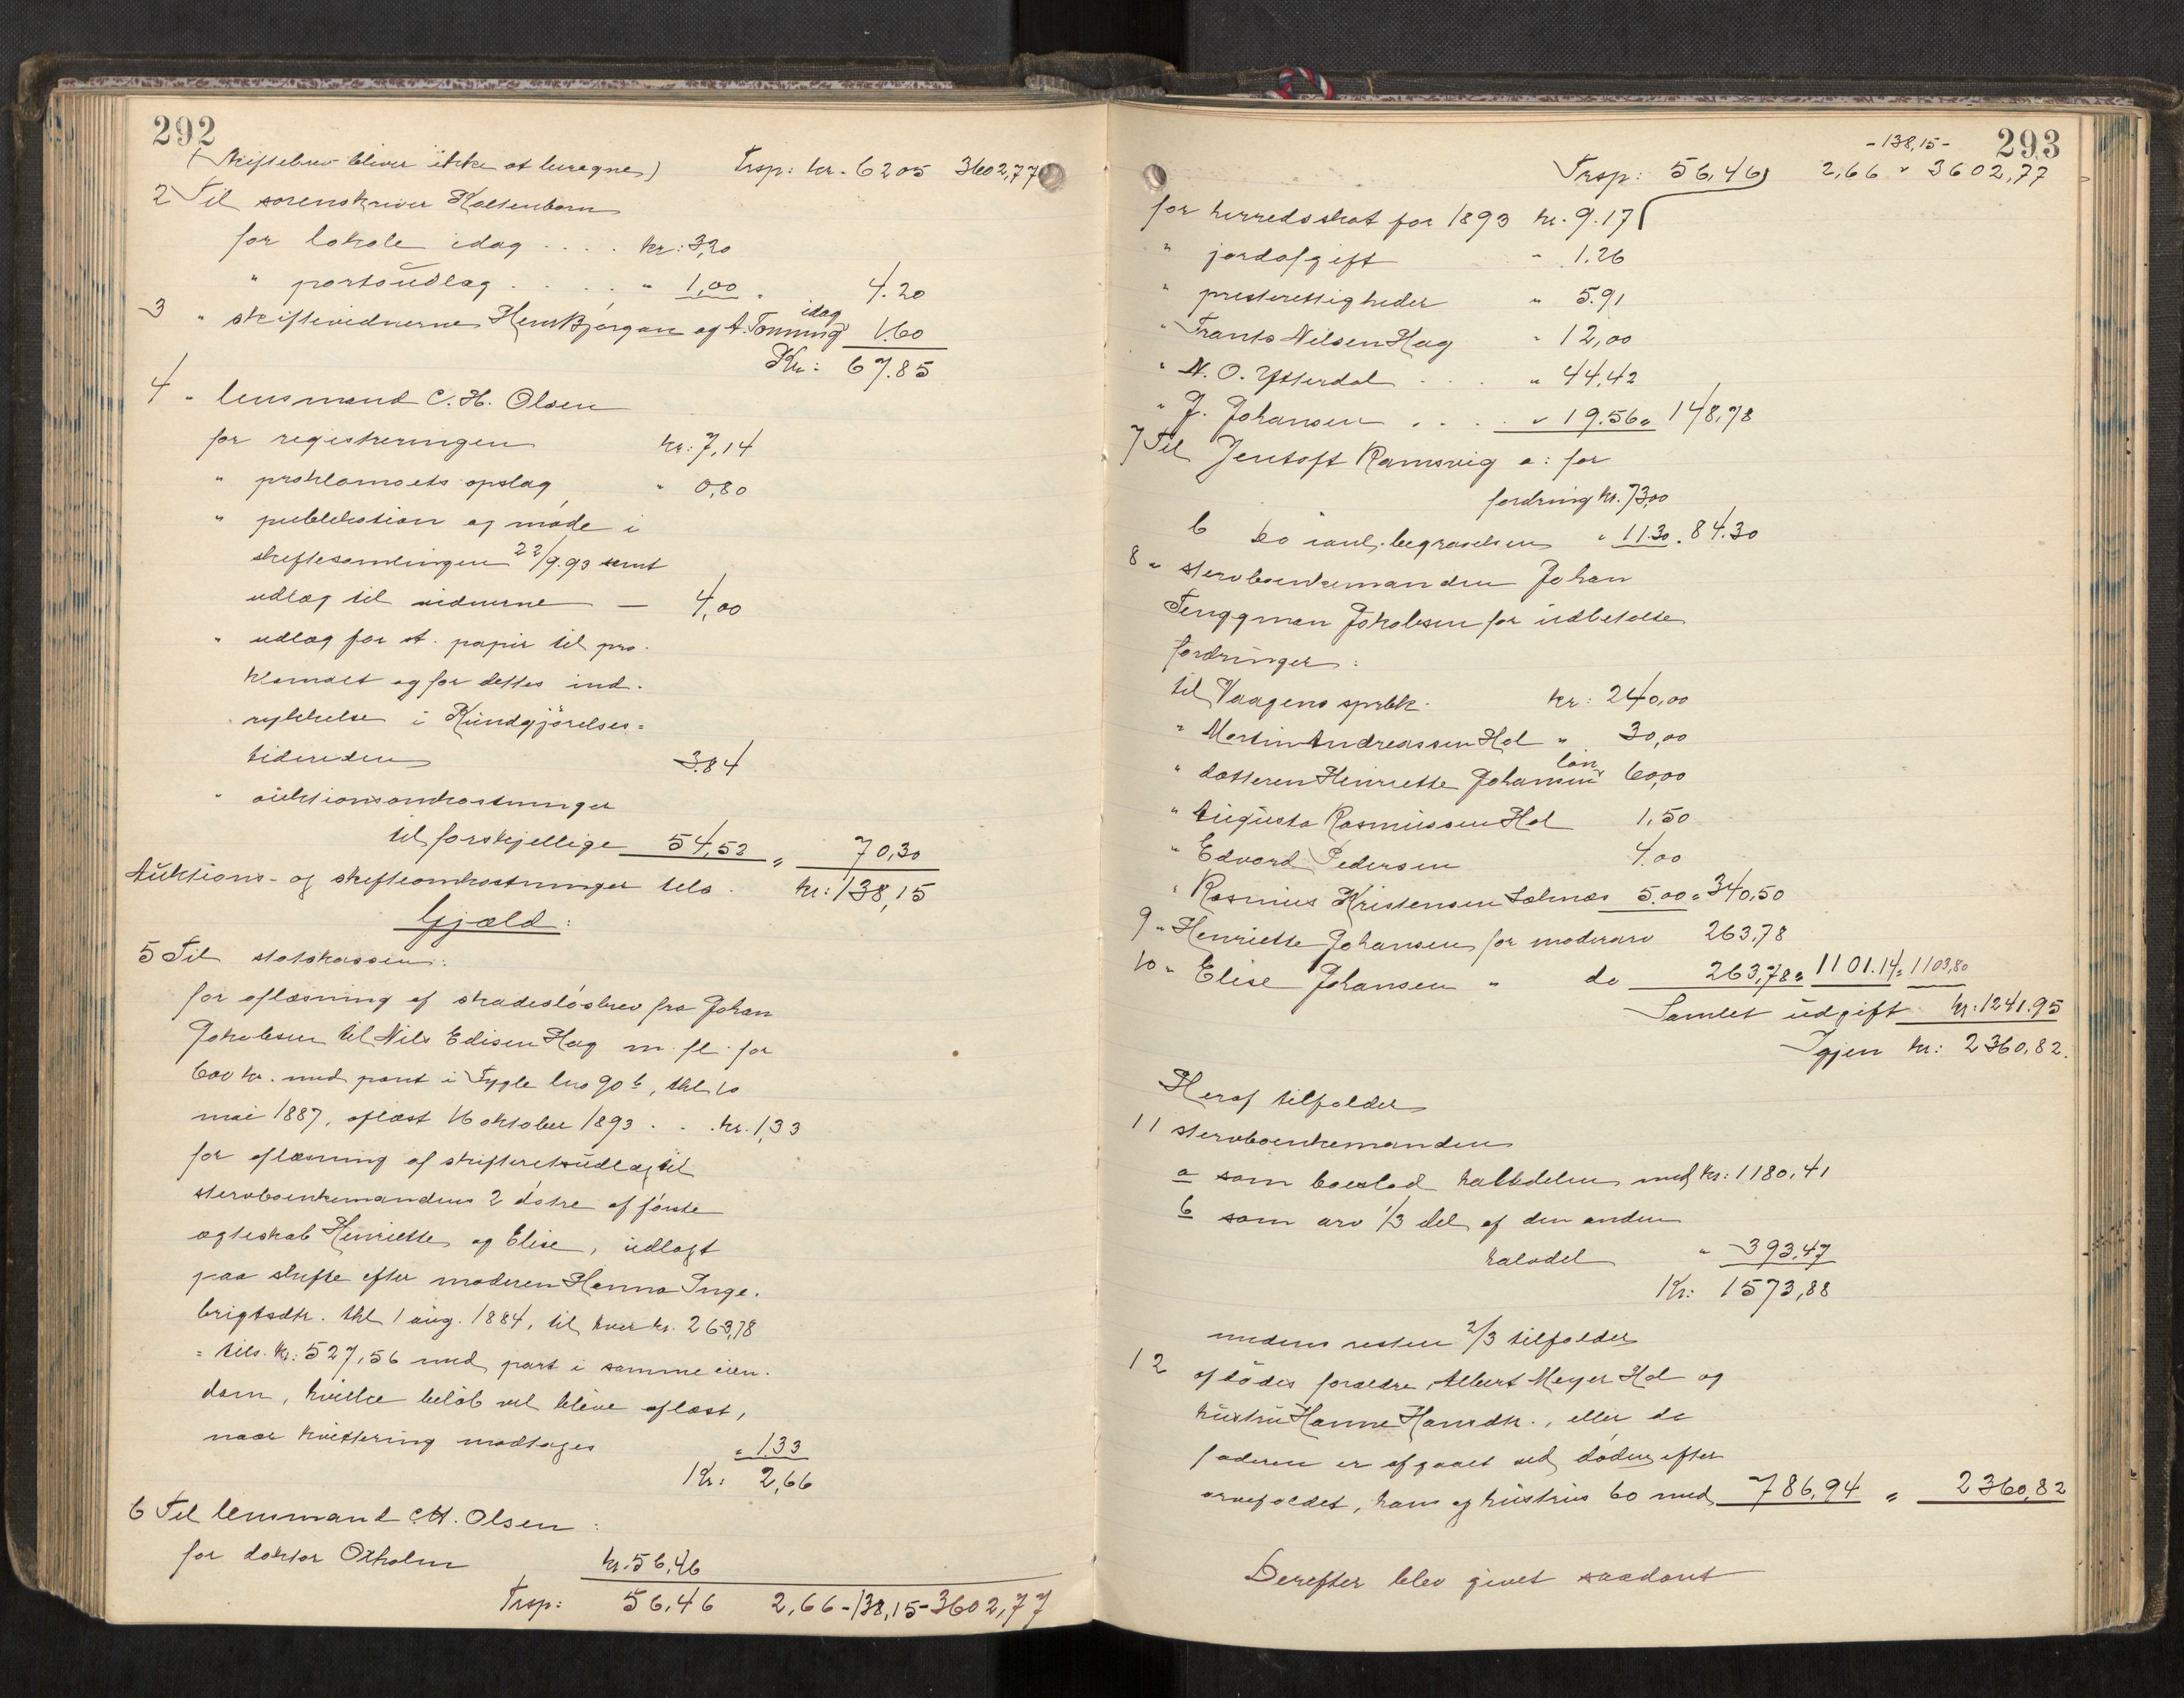 292
(Skiftebrev bliver ikke at beregne) Trsp: kr. 62 05 3602,77
2 Til sorenskriver Koltenborn
for lokale idag .... kr: 3,20
" portoudlag ..... " 1,00 . 4.20
idag
3 " skiftevidnerne Hens Bjørgan og A. Tonning 1.60
Kr: 67.85
4 " lensmand C. H. Olsen
for registreringen kr: 7,14
" proklamaets opslag " 0,80
" publikation og møde i
skiftesamlingen 22/9.93 samt
udlæg til vidnerne — 4,00
" udlæg for st. papir til pro-
klamaet og for dettes ind-
rykkelse i Kundgjörelses=
tidenden 3.84
" auktionsomkostninger
til forskjellige 54,52 " 70,30
Auktions- og skifteomkostninger tils. kr: 138,15
Gjæld:
5 Til statskassen:
for aflæsning af skadesløsbrev fra Johan
Jakobsen til Nils Edisen Hag m. fl. for
600 kr. med pant i Tygle lno 90 b, thl. 10
mai 1887, aflæst 16 oktober 1893 . . . kr. 1,33
for aflæsning af skifteretsudlæg til
sterboenkemandens 2 døtre af første
ægteskab Henriette og Elise, udlagt
paa skifte efter moderen Hanna Inge-
brigtsdtr. thl 1 aug. 1884, til hver kr. 263,78
= tils. kr: 527,56 med part i samme eien-
dom, hvilke beløb vil blive aflæst,
naar kvittering modtages " 1.33
Kr: 2,66
6 Til lensmand C. H. Olsen:
for doktor Oxholm kr. 56,46
Trsp: 56,46 2,66 - 138,15 - 3602,77
293
- 138,15 -
Trsp: 56,46 2,66 " 3602,77
for herredsskat for 1893 kr. 9.17
" jordafgift - 1.26
" presterettigheder " 5.91
" Frants Nilsen Hag " 12,00
" N. O. Ytterdal . . . " 44,42
" J. Johansen . . . . " 19.56 " 148,78
7 Til Jentoft Ramsvig a: for
fordring kr. 73,00
b do i anl. begravelsen " 11.30 . 84.30
8 " sterboenkemanden Johan
Tenggman Jakobsen for udbetalte
fordringer:
til Vaagens sprbk. kr: 240,00
" Martin Andreassen Hol " 30,00
lån
" datteren Henriette Johansen 60,00
" Augusta Rasmussen Hol 1,50
" Edvard Pedersen 4.00
" Rasmus Kristensen Salnæs 5.00 " 340,50
9 " Henriette Johansen for moderarv 263,78
10 " Elise Johansen " do 263,78 " 1101.14 " 1103,80
Samlet udgift kr: 1241.95
Igjen kr: 2360,82.
Heraf tilfalder
11 sterboenkemanden
a som boeslod halvdelen med kr: 1180,41
b som arv 1/3 del af den anden
halvdel " 393,47
Kr: 1573,88
medens resten 2/3 tilfalder
12 afdödes forældre, Albert Meyer Hol og
hustru Hanne Hansdtr., eller da
faderen er afgaaet ved døden efter
arvefaldet, hans og hustrus bo med 786,94 " 2360,82
Derefter blev givet saadant